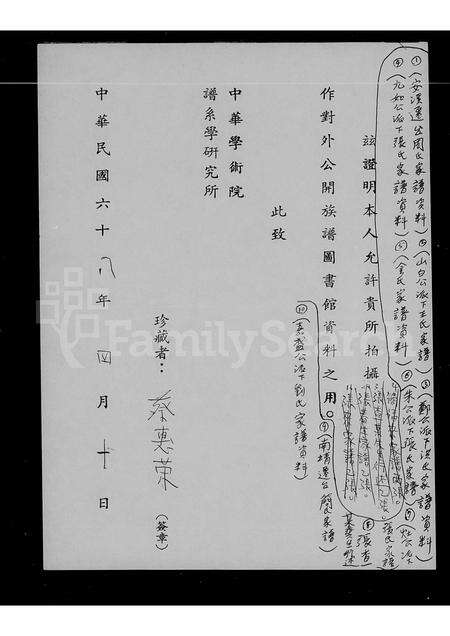 ①(安溪遷台周氏家譜資料)②(山白公派下王氏家譜)③(鄭公派下洪氏家譜資料)
④(九如公派下張氏家譜資料)⑤(余氏家譜資料)⑥(朱公派下張氏家譜)⑦
茲證明本人允許貴所拍攝
張氏家譜
⑧(張查
作對外公開族譜圖書館資料之用。⑨(南靖遷台簡氏家譜)
⑩(嘉盛公派下劉氏家譜資料)
此致
中華學術院
譜系學研究所
珍藏者:蔡惠榮(簽章)
中華民國六十八年四月十日
FamilySearch